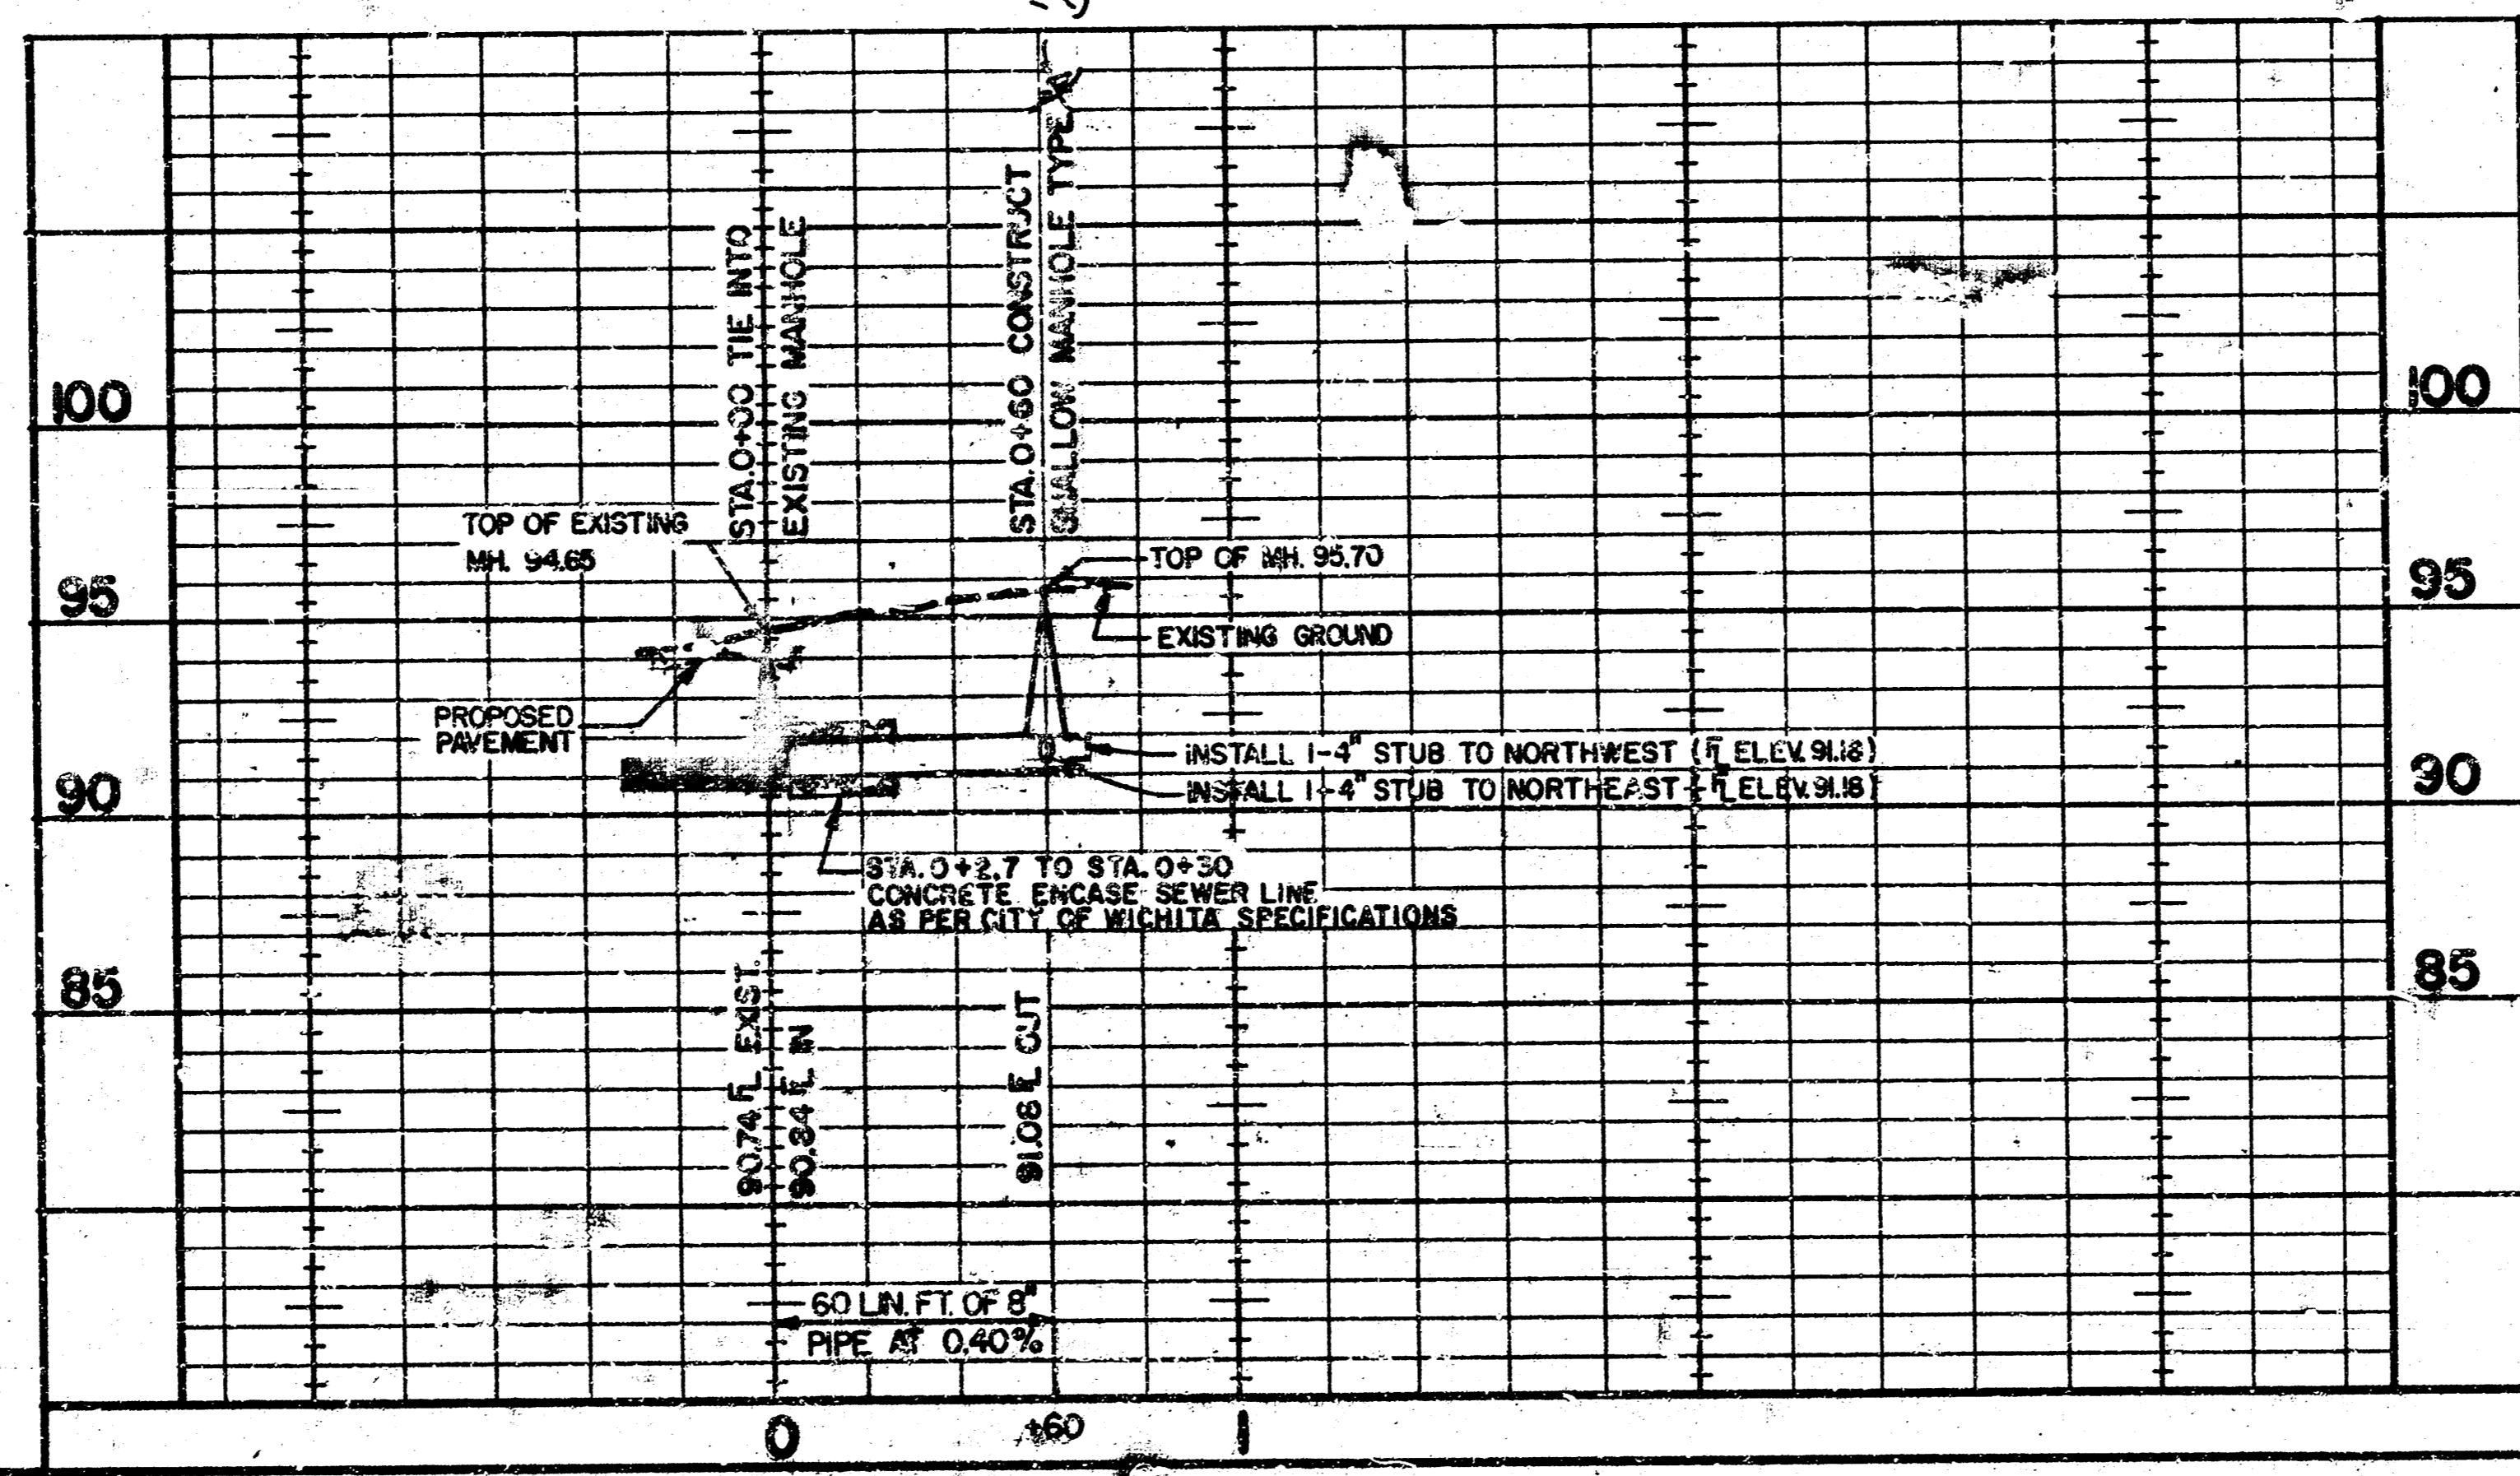 STA. 0+00 TIE INTO
EXISTING MANHOLE
STA. 0+60 CONSTRUCT
SHALLOW MANHOLE TYPE "A"
100
100
TOP OF EXISTING
MH. 94.65
TOP OF MH. 95.70
95
95
EXISTING GROUND
PROPOSED
PAVEMENT
INSTALL 1-4" STUB TO NORTHWEST (FL ELEV. 91.18)
INSTALL 1-4" STUB TO NORTHEAST (FL ELEV. 91.18)
90
90
STA. 0+2.7 TO STA. 0+30
CONCRETE ENCASE SEWER LINE
AS PER CITY OF WICHITA SPECIFICATIONS
85
85
90.74 FL EXIST.
90.84 FL IN
91.08 FL OUT
60 LIN. FT. OF 8"
PIPE AT 0.40%
0
+60
1